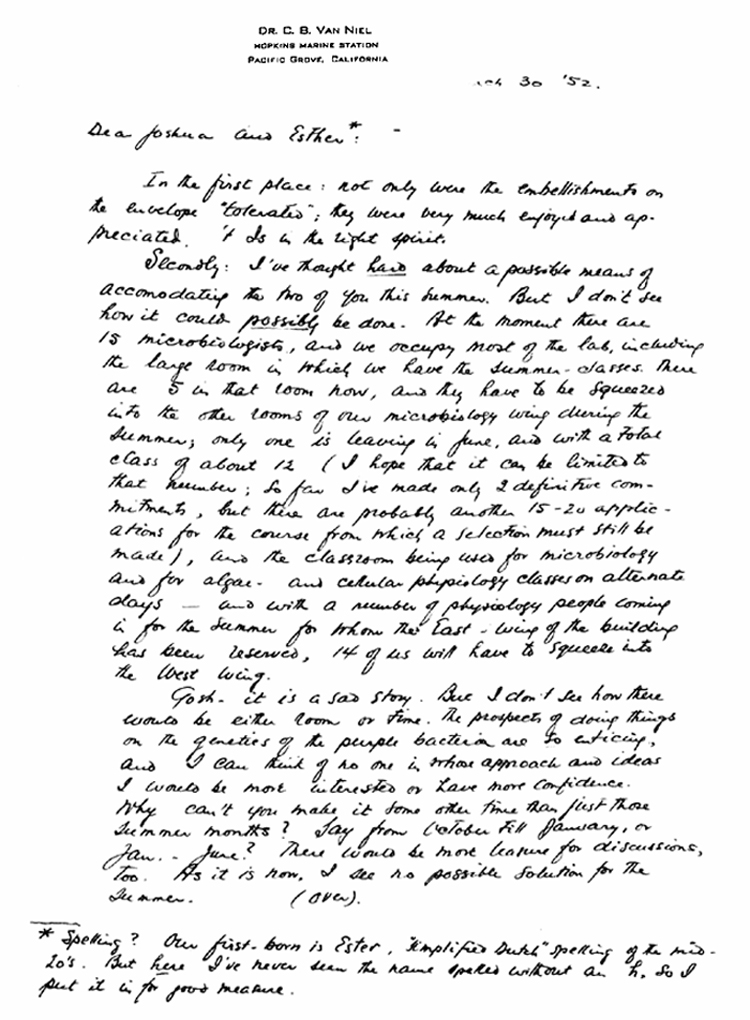 DR. C. B. VAN NIEL
HOPKINS MARINE STATION
PACIFIC GROVE, CALIFORNIA
30 '52.
Dear Joshua and Esther*: -
In the first place: not only were the embellishments on
the envelope "tolerated"; they were very much enjoyed and ap-
preciated. 't Is in the right spirit.
Secondly: I've thought hard about a possible means of
accomodating the two of you this summer. But I don't see
how it could possibly be done. At the moment there are
15 microbiologists, and we occupy most of the lab, including
the large room in which we have the summer-classes. There
are 5 in that room now, and they have to be squeezed
into the other rooms of our microbiology wing during the
summer; only one is leaving in June, and with a total
class of about 12 (I hope that it can be limited to
that number; so far I've made only 2 definitive com-
mitments, but there are probably another 15-20 applic-
ations for the course from which a selection must still be
made), and the classroom being used for microbiology
and for algae- and cellular physiology classes on alternate
days — and with a number of physiology people coming
in for the summer for whom the East-wing of the building
has been reserved, 14 of us will have to squeeze into
the West wing.
Gosh - it is a sad story. But I don't see how there
would be either room or time. The prospects of doing things
on the genetics of the purple bacteria are so enticing,
and I can think of no one in whose approach and ideas
I would be more interested or have more confidence.
Why can't you make it some other time than just those
summer months? Say from October till January, or
Jan. - June? There would be more leasure for discussions,
too. As it is now, I see no possible solution for the
summer. (over).
* Spelling? Our first-born is Ester, "simplified Dutch" spelling of the mid-
20's. But here I've never seen the name spelled without an h, so I
put it in for good measure.